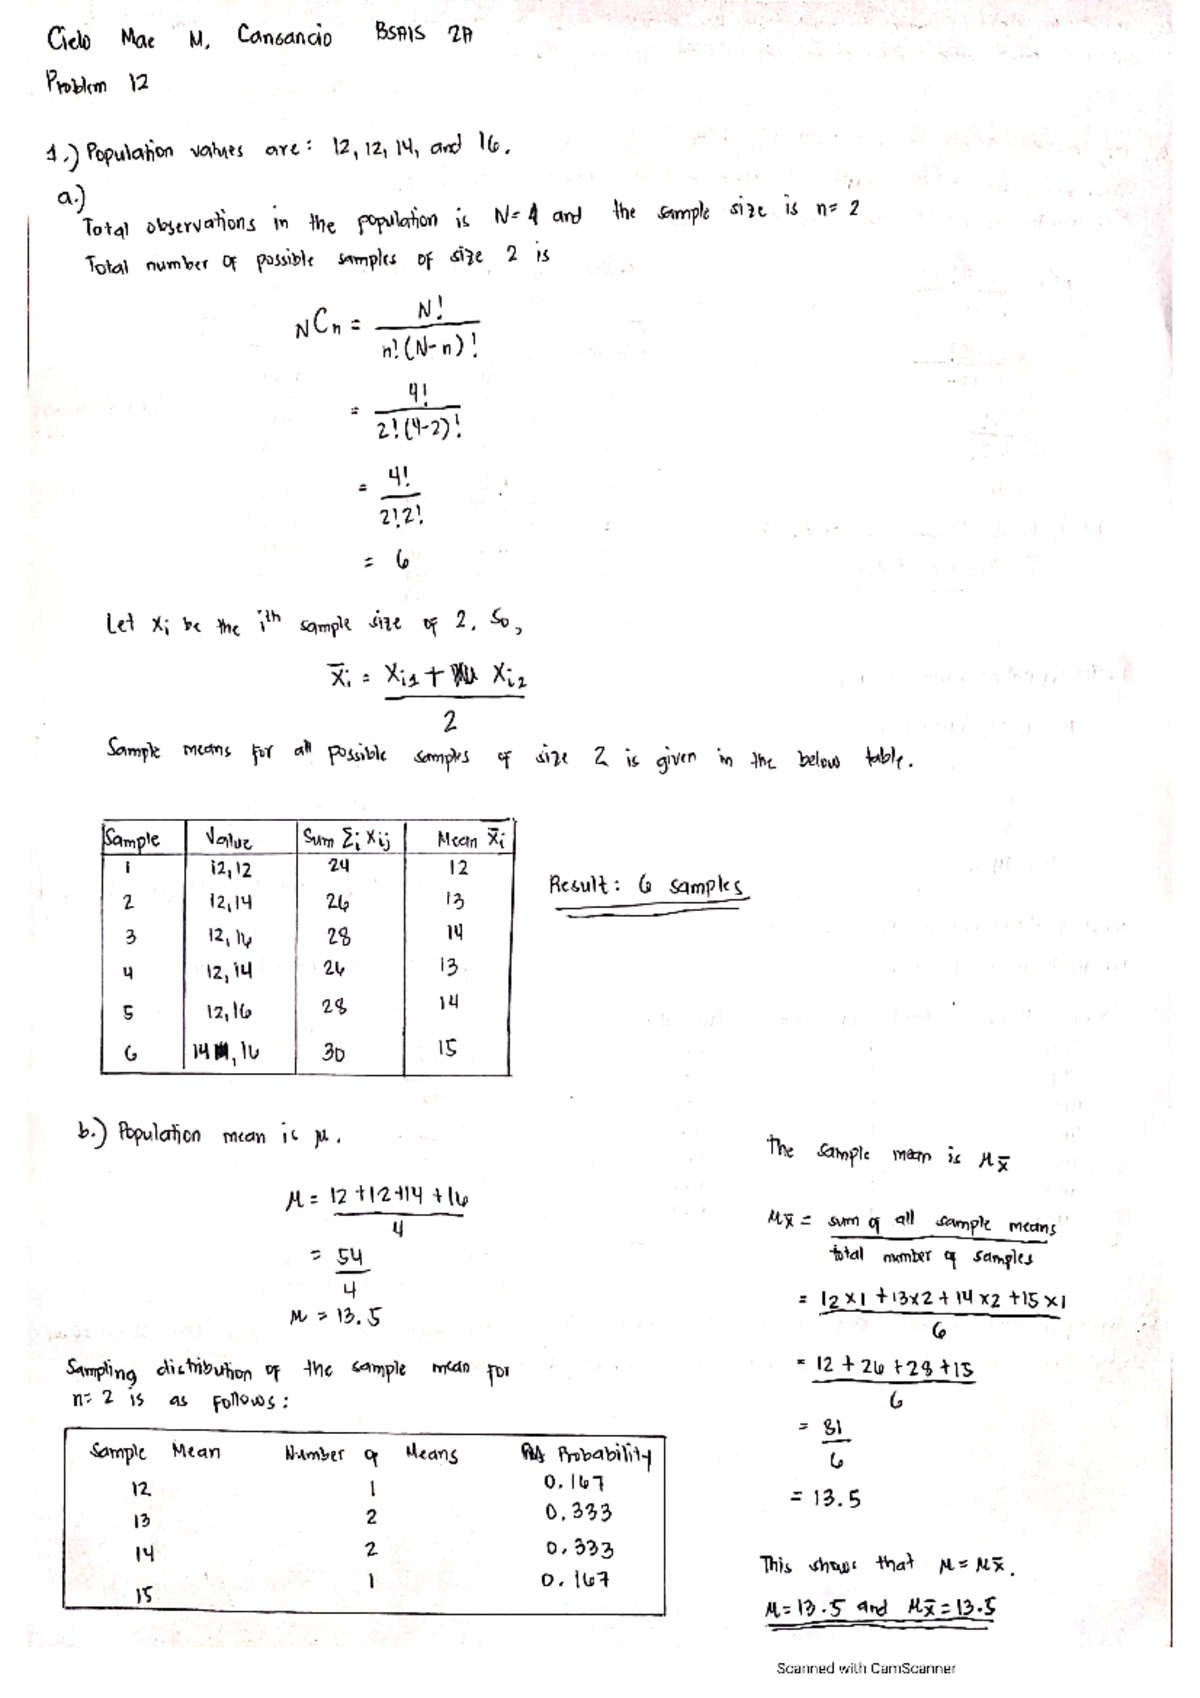 Cielo Mae M. Cansancio BSAIS 2A
Problem 12
1.) Population values are: 12, 12, 14, and 16.
a.)
Total observations in the population is N= 4 and the sample size is n= 2
Total number of possible samples of size 2 is
NCn = N! / n!(N-n)!
= 4! / 2!(4-2)!
= 4! / 2!2!
= 6
Let xi be the ith sample size of 2. So,
x̄i = xi1 + xi2 / 2
Sample means for all possible samples of size 2 is given in the below table.
Sample Value Sum Σi xij Mean x̄i
1 12,12 24 12
2 12,14 26 13
3 12,16 28 14
4 12,14 26 13
5 12,16 28 14
6 14,16 30 15
Result: 6 samples
b.) Population mean is μ.
μ = 12+12+14+16 / 4
= 54 / 4
μ = 13.5
Sampling distribution of the sample mean for
n= 2 is as follows:
Sample Mean Number of Means Probability
12 1 0.167
13 2 0.333
14 2 0.333
15 1 0.167
The sample mean is μx̄
μx̄ = sum of all sample means / total number of samples
= 12x1 + 13x2 + 14x2 + 15x1 / 6
= 12 + 26 + 28 + 15 / 6
= 81 / 6
= 13.5
This shows that μ = μx̄.
μ = 13.5 and μx̄ = 13.5
Scanned with CamScanner